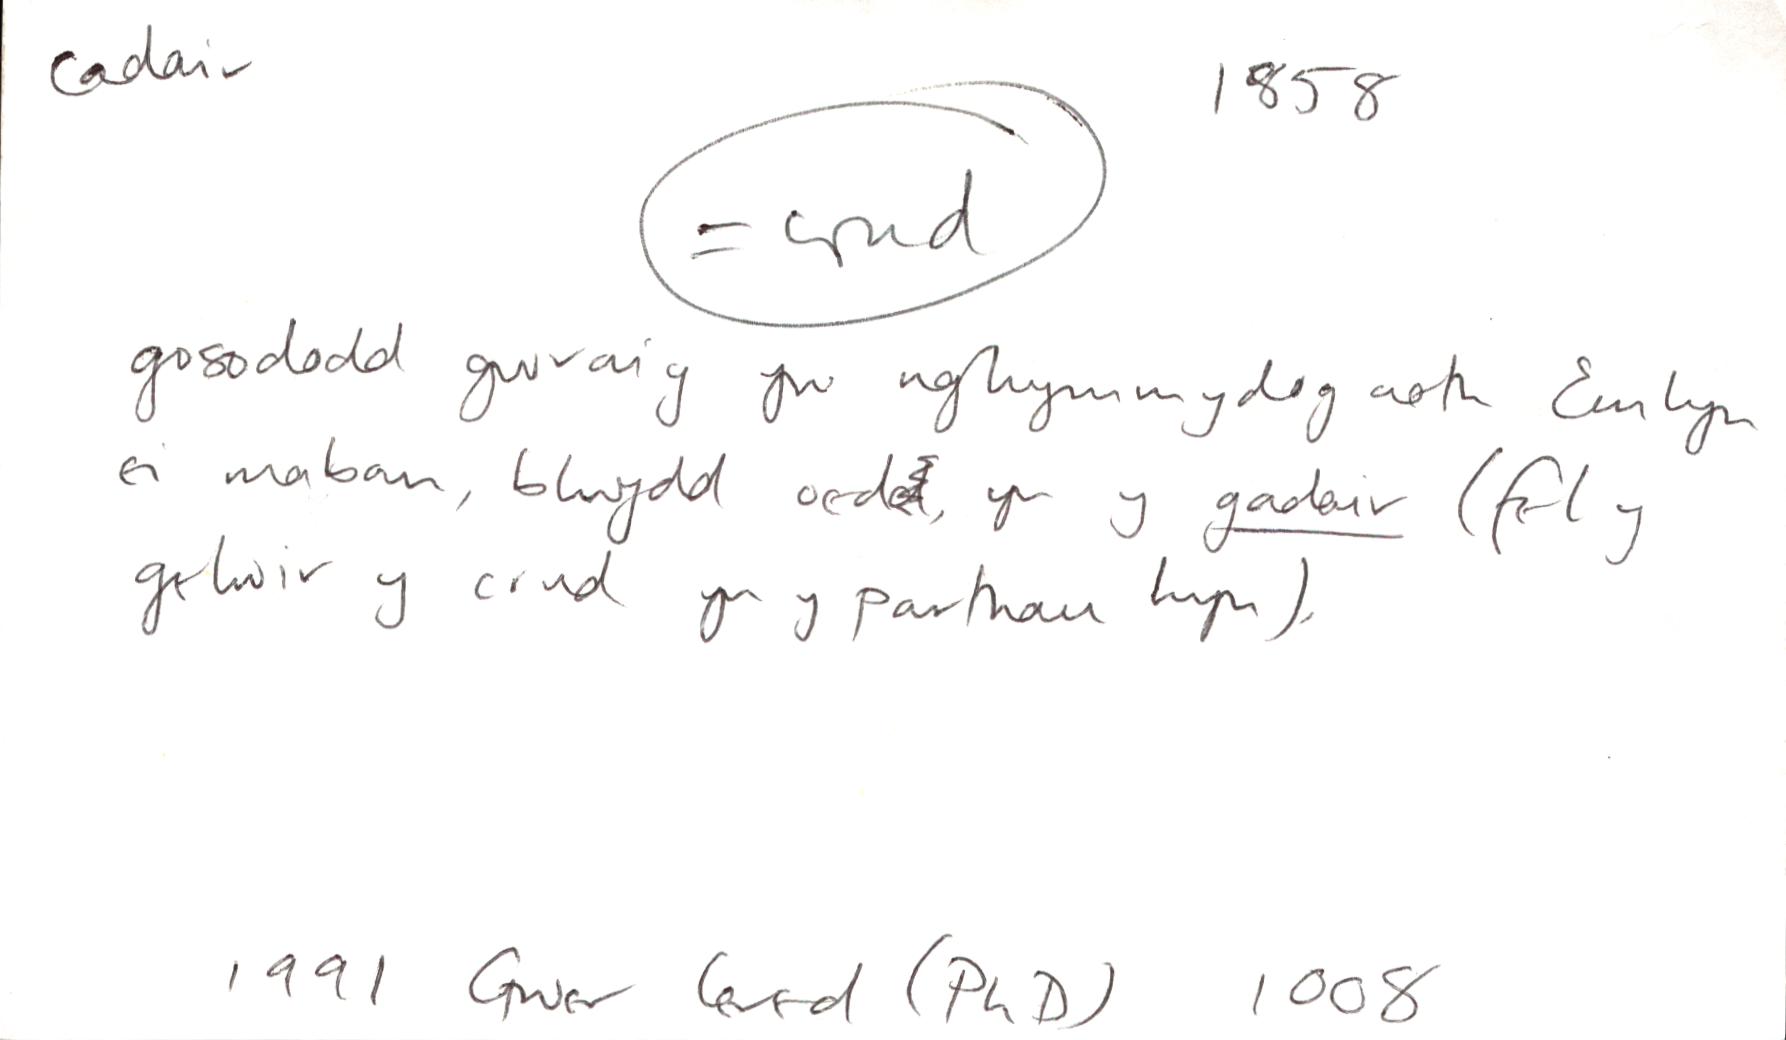 cadair 1858
= crud
gosododd gwraig yn nghymmydogaeth Emlyn
ei maban, blwydd oed, yn y gadair (fel y
gelwir y crud yn y parthau hyn).
1991 Gwer Cered (PhD) 1008